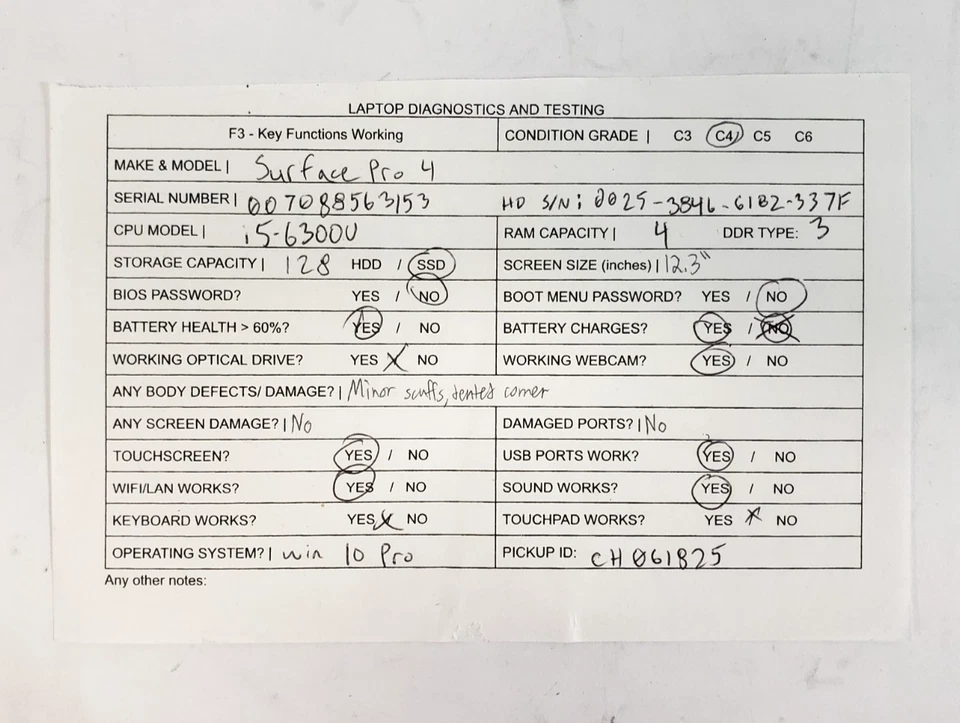 LAPTOP DIAGNOSTICS AND TESTING
F3 - Key Functions Working CONDITION GRADE | C3 C4 C5 C6
MAKE & MODEL | Surface Pro 4
SERIAL NUMBER | 007088563153 HD S/N: 0025-3846-61B2-337F
CPU MODEL | i5-6300U RAM CAPACITY | 4 DDR TYPE: 3
STORAGE CAPACITY | 128 HDD / SSD SCREEN SIZE (inches) | 12.3"
BIOS PASSWORD? YES / NO BOOT MENU PASSWORD? YES / NO
BATTERY HEALTH > 60%? YES / NO BATTERY CHARGES? YES / NO
WORKING OPTICAL DRIVE? YES X NO WORKING WEBCAM? YES / NO
ANY BODY DEFECTS/ DAMAGE? | Minor scuffs, dented corner
ANY SCREEN DAMAGE? | No DAMAGED PORTS? | No
TOUCHSCREEN? YES / NO USB PORTS WORK? YES / NO
WIFI/LAN WORKS? YES / NO SOUND WORKS? YES / NO
KEYBOARD WORKS? YES X NO TOUCHPAD WORKS? YES X NO
OPERATING SYSTEM? | Win 10 Pro PICKUP ID: CH061825
Any other notes: